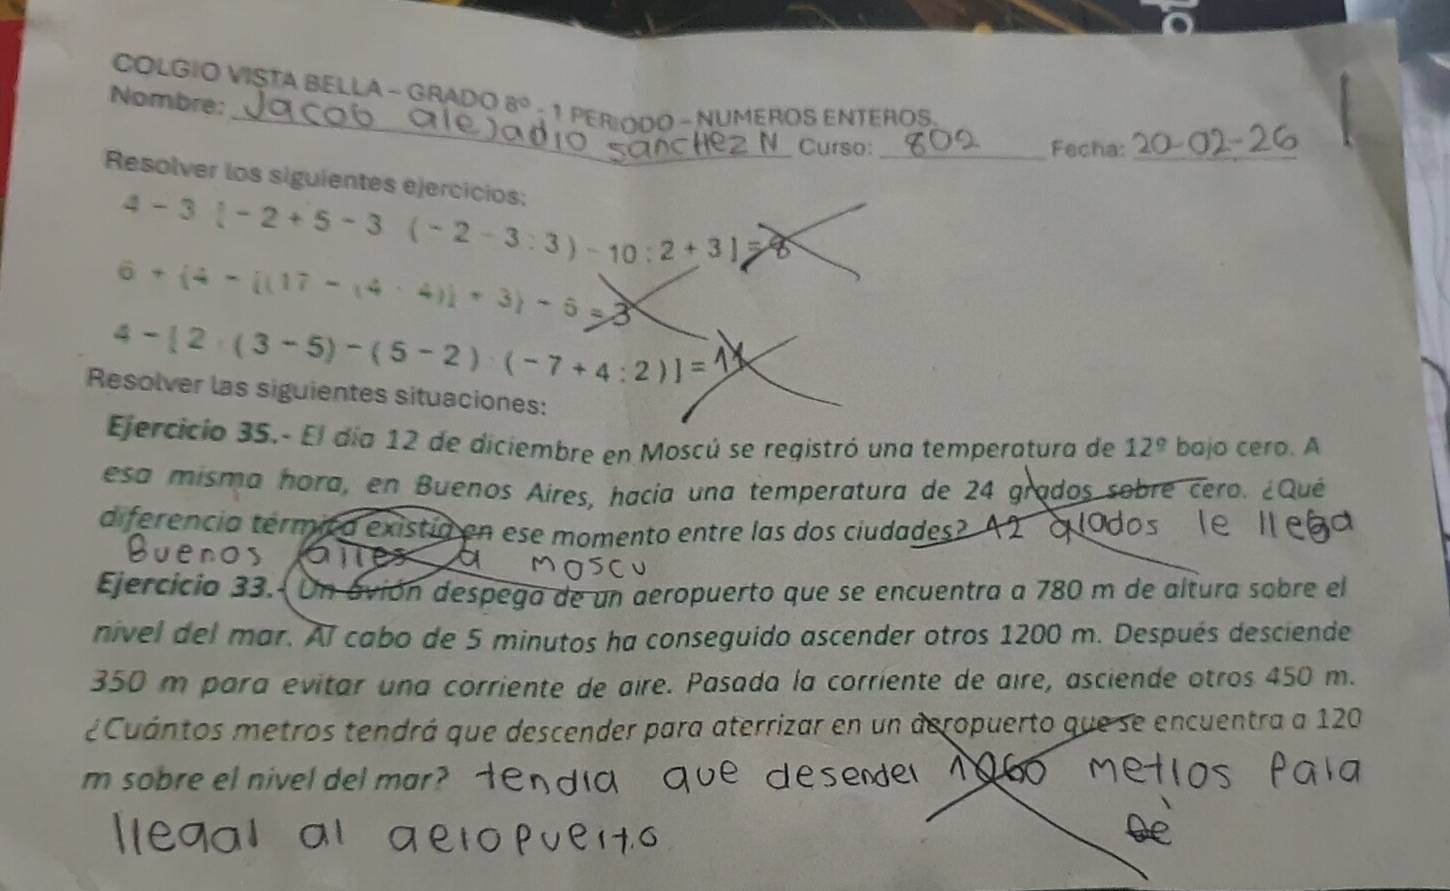 COLGIO VISTA BELLA - GRADO 8° - 1 PERIODO - NUMEROS ENTEROS.
Nombre: Jacob alejadio sancHez N Curso: 802 Fecha: 20-02-26
Resolver los siguientes ejercicios:
4 - 3 [ - 2 + 5 - 3 ( - 2 - 3 : 3 ) - 10 : 2 + 3 ] = 8
6 + {4 - [(17 - (4 · 4)] + 3} - 5 = 3
4 - [ 2 · ( 3 - 5 ) - ( 5 - 2 ) · ( - 7 + 4 : 2 ) ] = 11
Resolver las siguientes situaciones:
Ejercicio 35.- El día 12 de diciembre en Moscú se registró una temperatura de 12º bajo cero. A
esa misma hora, en Buenos Aires, hacía una temperatura de 24 grados sobre cero. ¿Qué
diferencia térmica existía en ese momento entre las dos ciudades? 12 glados le llega
Buenos aires a moscu
Ejercicio 33.- Un avión despega de un aeropuerto que se encuentra a 780 m de altura sobre el
nivel del mar. Al cabo de 5 minutos ha conseguido ascender otros 1200 m. Después desciende
350 m para evitar una corriente de aire. Pasada la corriente de aire, asciende otros 450 m.
¿Cuántos metros tendrá que descender para aterrizar en un aeropuerto que se encuentra a 120
m sobre el nivel del mar? tendia que desender 1960 metros para
llegar al aeropuerto